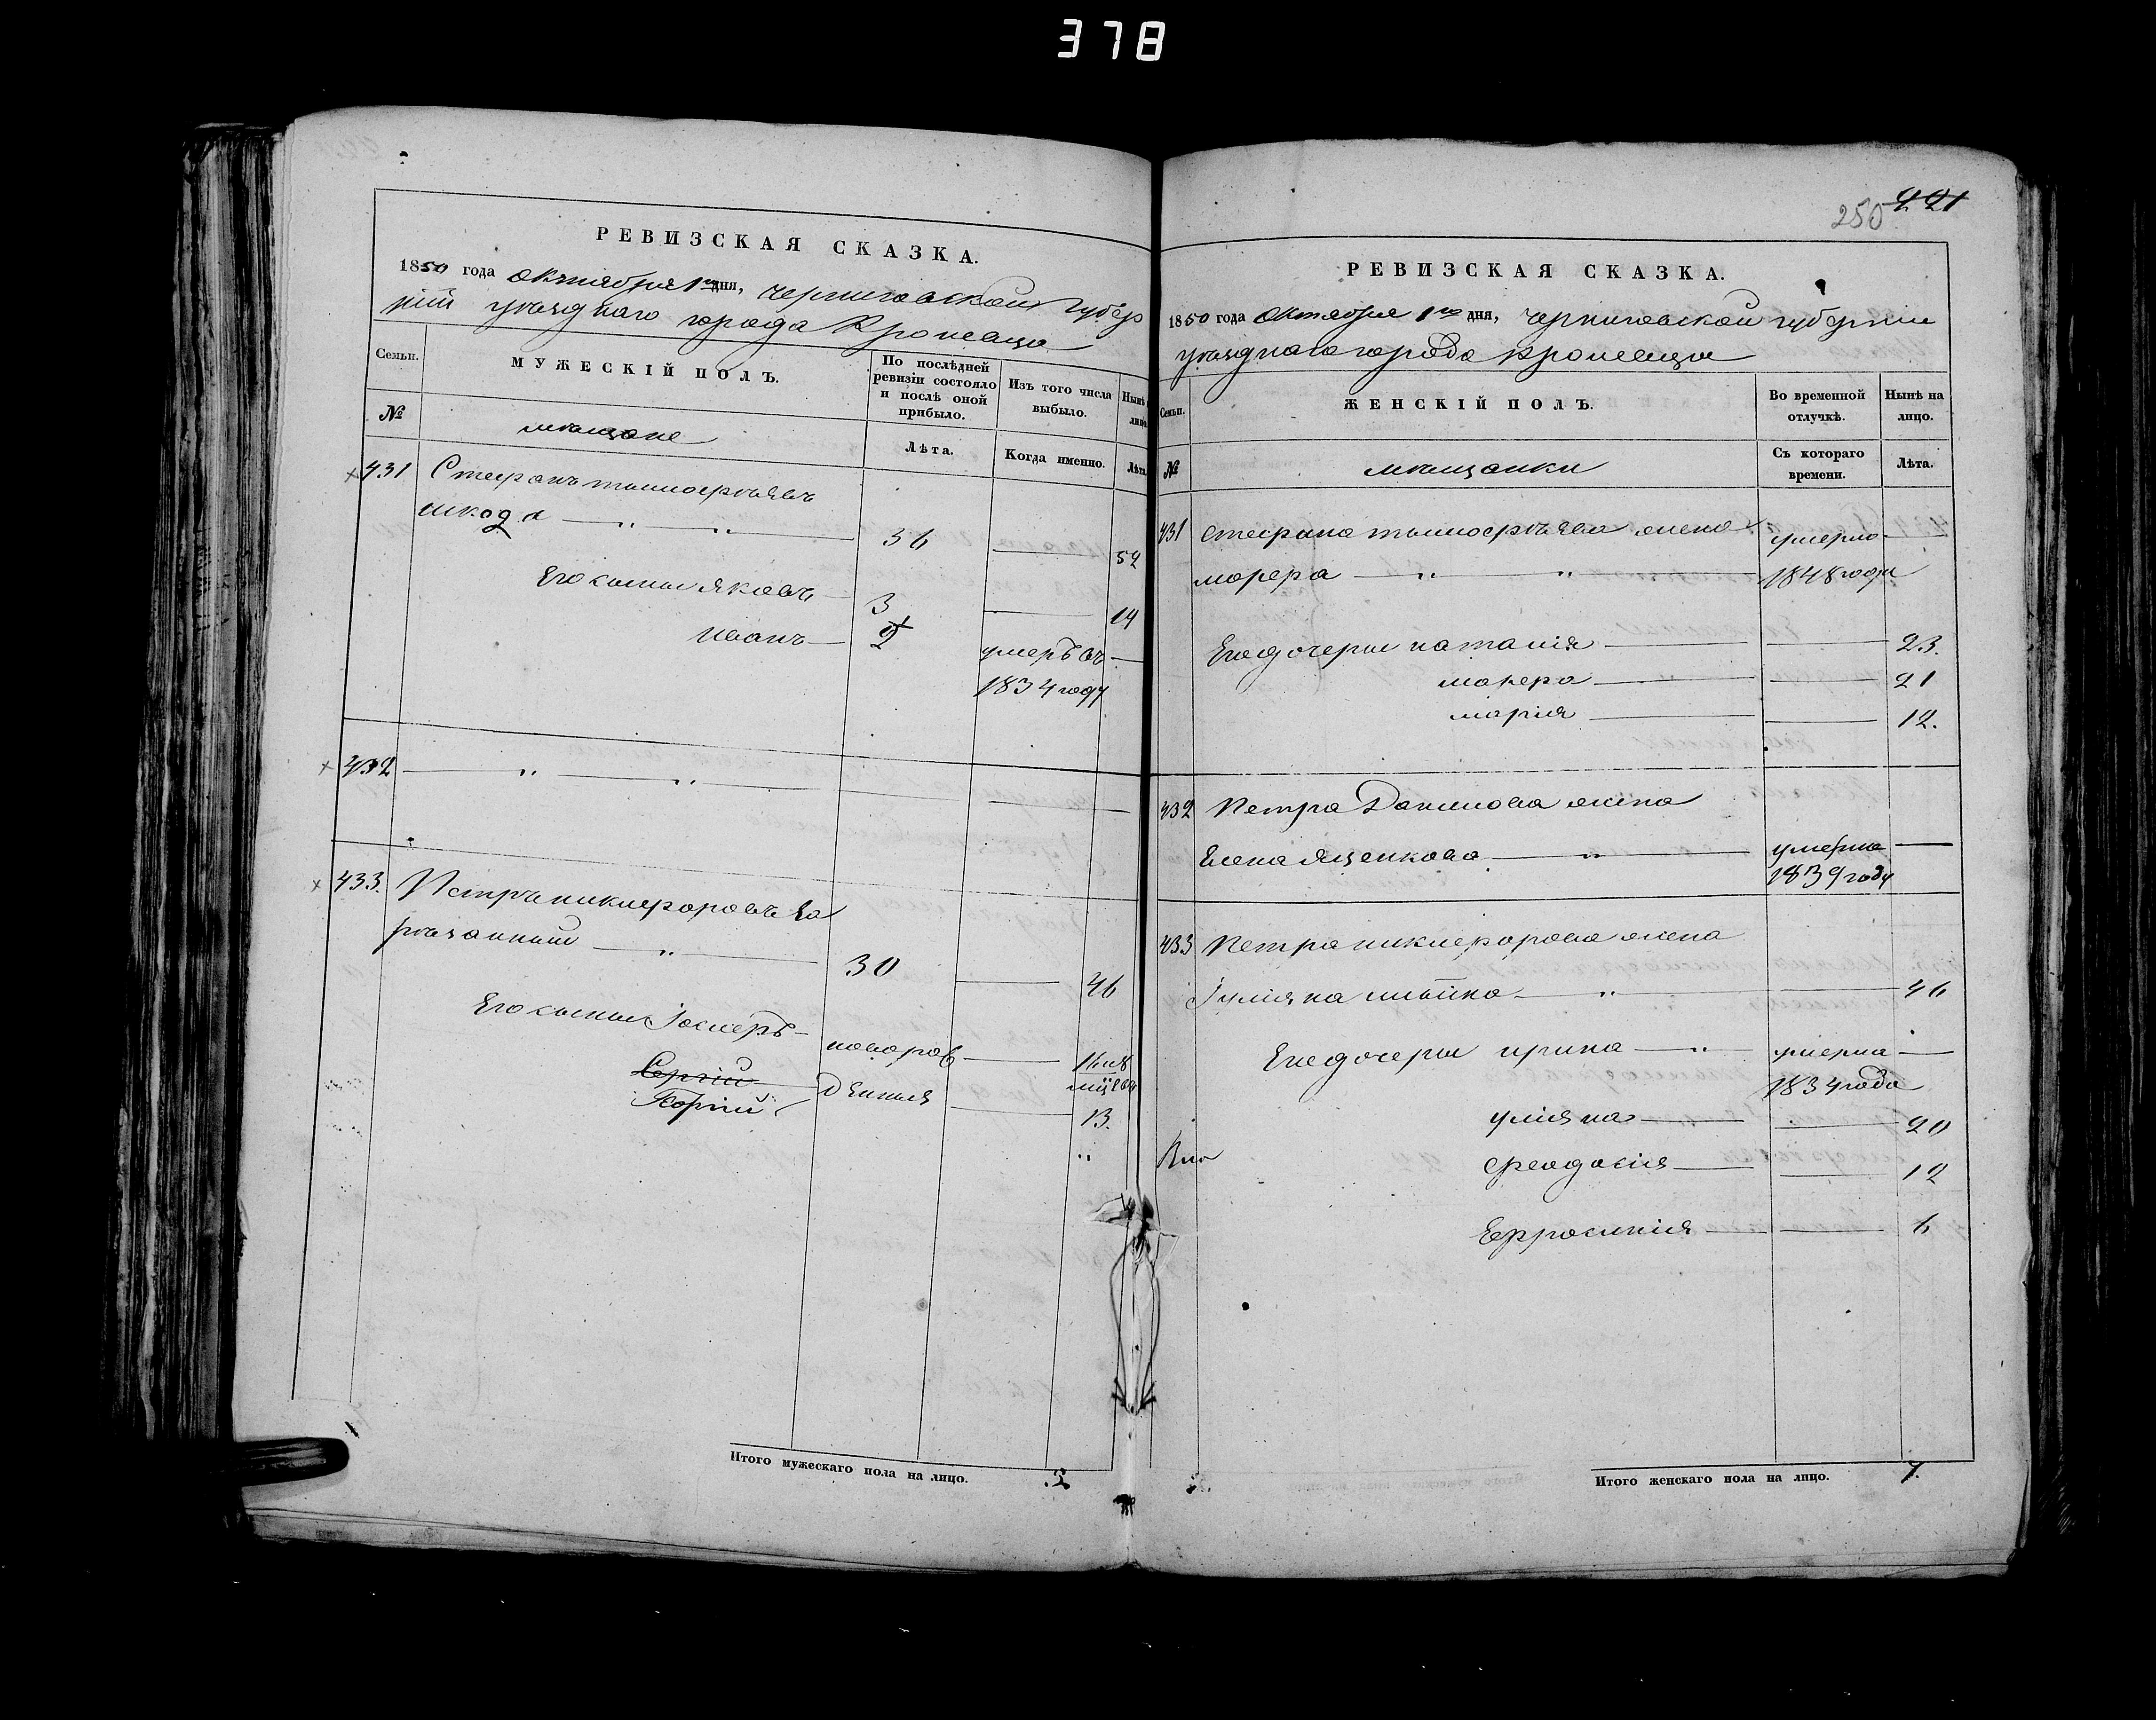 378
РЕВИЗСКАЯ СКАЗКА.
1850 года Октября 1го дня, Черниговской Губер
ніи уѣзднаго города Кролевца
Семьи.
МУЖЕСКІЙ ПОЛЪ.
По послѣдней
ревизіи состояло
и послѣ оной
прибыло.
Изъ того числа
выбыло.
Нынѣ
лицо
№
мѣщане
Лѣта.
Когда именно.
Лѣта
431 Стефанъ тимофѣевъ
шкода 36 52
Его сыны яковъ 3 14
Иванъ 2 умеръ въ
1834 году
432
433. Петръ никифоровъ
30 46
Его сыны Іосифъ новоров 16
Сергій
Георгій 13.
Итого мужескаго пола на лицо.
250 221
РЕВИЗСКАЯ СКАЗКА.
1850 года Октября 1го дня, Черниговской губерніи
уѣзднаго города Кролевца
Семьи.
ЖЕНСКІЙ ПОЛЪ.
Во временной
отлучкѣ.
Нынѣ на
лицо.
№
мѣщанки
Съ котораго
времени.
Лѣта.
431 Стефана тимофѣева жена умерла
марфа 1848 года
Его дочери наталія 23.
марфа 21
марія 12.
432 Петра Данилова жена
Елена Яценкова умерла
1839 году
433 Петра никифорова жена
Іуліяна 46
Его дочери ирина умерла
1834 года
уліяна 20
феодосія 12
Ефросинія 6
Итого женскаго пола на лицо. 7.